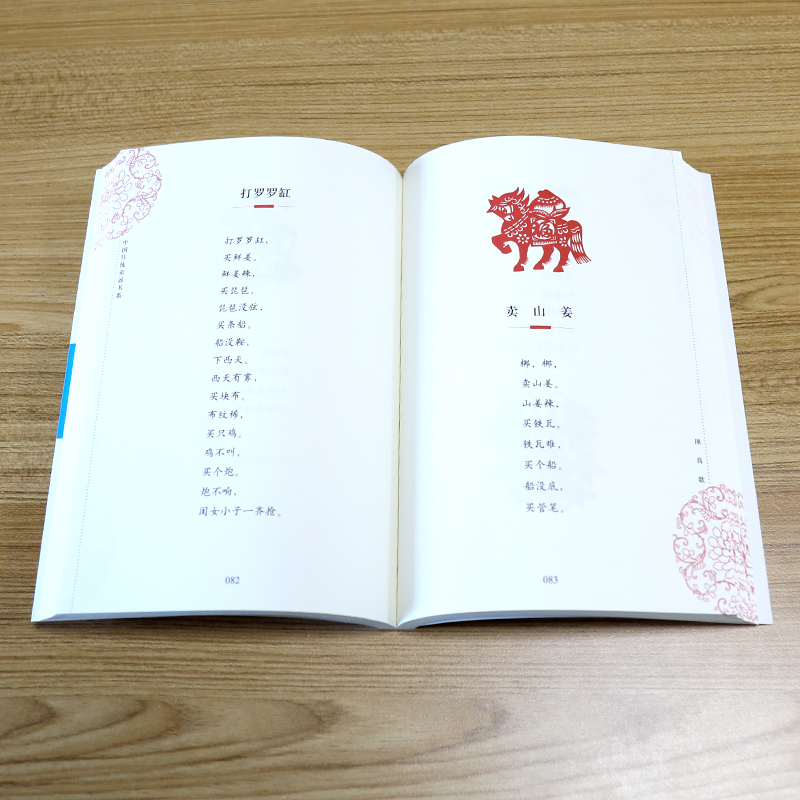 打罗罗缸
打罗罗缸，
买鲜姜。
鲜姜辣，
买琵琶。
琵琶没弦，
买条船。
船没鞍，
下西天。
西天有雾，
买块布。
布纹稀，
买只鸡。
鸡不叫，
买个炮。
炮不响，
闺女小子一齐抢。
082
卖山姜
梆，梆，
卖山姜。
山姜辣，
买铁瓦。
铁瓦难，
买个船。
船没底，
买管笔。
083
顶真歌